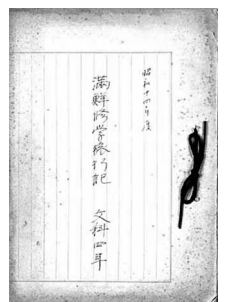 昭和十四年度
満鮮修学旅行記 文科四年